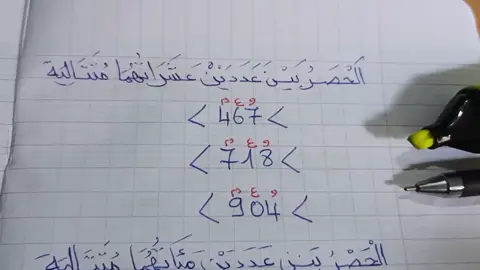 اَلْحَصْرُ بَيْنَ عَدَدَيْنِ عَشَرَاتُهُمَا مُتَتَالِيَة
م ع و
< 467 <
م ع و
< 718 <
م ع و
< 904 <
اَلْحَصْرُ بَيْنَ عَدَدَيْنِ مِئَاتُهُمَا مُتَتَالِيَة